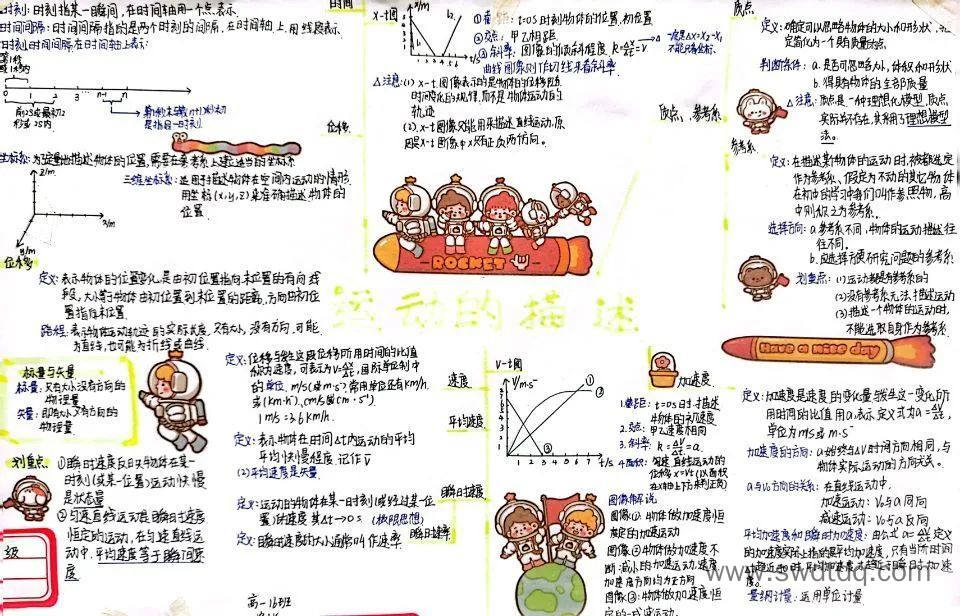 时间
时刻: 时刻指某一瞬间, 在时间轴用一个点表示
时间间隔: 时间间隔指的是两个时刻的间隔, 在时间轴上用线段表示
时刻和时间间隔在时间轴上表示:
第1秒
0 1 2 3 n-1 n
前2S或最初2
秒或2S内
是指同一时刻
位移
坐标系: 为定量地描述物体的位置, 需要在参考系上建立适当的坐标系
z/m
x/m
y/m
三维坐标系: 适用于描述物体在空间内运动的情形
用坐标(x,y,z)来准确描述物体的
位置
位移
定义: 表示物体的位置变化, 是由初位置指向末位置的有向线
段, 大小等于物体由初位置到末位置的距离, 方向由初位
置指向末位置.
路程: 表示物体运动轨迹的实际长度, 只有大小, 没有方向, 可能
为直线, 也可能为折线或曲线.
标量与矢量
标量: 只有大小没有方向的
物理量
矢量: 即有大小又有方向的
物理量
划重点
①瞬时速度反映物体在某一
时刻(或某一位置)运动快慢
是状态量
②匀速直线运动是瞬时速度
恒定的运动, 在匀速直线运
动中, 平均速度等于瞬时速
度
级
x-t图
x/m
t/s
①截距: t=0S时刻物体的位置, 初位置
②交点: 甲乙相距
③斜率: 图像的倾斜程度 k=Δx/Δt=v
一定是Δx=x₂-x₁
不能只看坐标
曲线图像则作切线来看斜率
△注意: (1) x-t图像表示的是物体的位移随
时间变化的规律, 而不是物体运动的
轨迹
(2). x-t图像只能用来描述直线运动, 原
因是x-t图像中x只有正负两方向.
ROCKET
运动的描述
定义: 位移与发生这段位移所用时间的比值
称为速度, 可表示为v=Δx/Δt, 国际单位制中
的单位: m/s(或m·s⁻¹)常用单位还有km/h
或(km·h⁻¹), cm/s或(cm·s⁻¹)
1m/s=3.6km/h.
速度
定义: 表示物体在时间Δt内运动的平均
平均快慢程度, 记作v̄
(2)平均速度是矢量
平均速度
定义: 运动的物体在某一时刻(或经过某一位
置)的速度其Δt→0S (极限思想)
定义: 瞬时速度的大小通常叫作速率
瞬时速度
瞬时速率
高一16班
v-t图
v/m·s⁻¹
t/s
1.截距: t=0S时, 描述
物体的初速度
2.交点: 甲乙速度相同
3.斜率: k=Δv/Δt=a.
4.面积: 匀速直线运动的
位移x=vt(以面积
在x轴上下方来判正负)
图像解说
图像①: 物体做加速度恒
定的加速运动
图像②: 物体做加速度不
断减小的加速运动, 速度
加速度方向均为正方向
图像③: 物体做加速度恒
定的减速运动
质点
定义: 确定可以忽略物体的大小和形状,
定简化为一个具有质量的点
判断条件: a.是否可忽略大小, 体积和形状
b.得具有物体的全部质量
△注意: 质点是一种理想化模型, 质点
实际并不存在, 其采用了理想模型
法。
质点、参考系
参考系
定义: 在描述某个物体的运动时, 被都选定
作为参考系、假定为不动的其它物体
在初中的学习中我们叫作参照物, 高
中则以之为参考系。
选择方向: a.参考系不同, 物体的运动描述往
往不同。
b.应选择方便研究问题的参考系
划重点: (1)运动都是有参考系的
(2)没有参考系无法描述运动
(3)描述一个物体的运动时,
不能选取自身作为参考系
Have a nice day
加速度
定义: 加速度是速度的变化量与发生这一变化所
用时间的比值, 用a表示, 定义式为a=Δv/Δt,
单位为m/s或m·s⁻²
加速度的方向: a始终与ΔV时间方向相同, 与
物体实际运动的方向无关。
a与v₀方向的关系: 在直线运动中.
加速运动: V₀与a同向
减速运动: V₀与a反向
平均加速度和瞬时加速度: 由公式a=Δv/Δt定义
的加速度实际上指的是平均加速度, 只有当所时间
度。
量纲计量: 运用单位计量
www.swdtdq.com